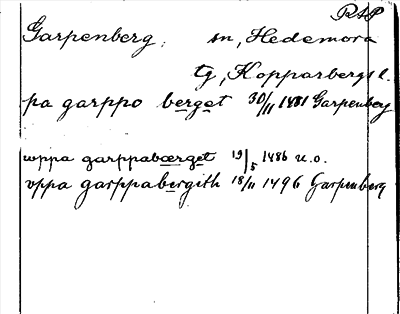 RAP
Garpenberg, sn, Hedemora
tg, Kopparbergs l.
pa garppo berget 30/11 1481 Garpenberg
vppa garppabærget 19/5 1486 u.o.
vppa garppabergith 18/11 1496 Garpenberg